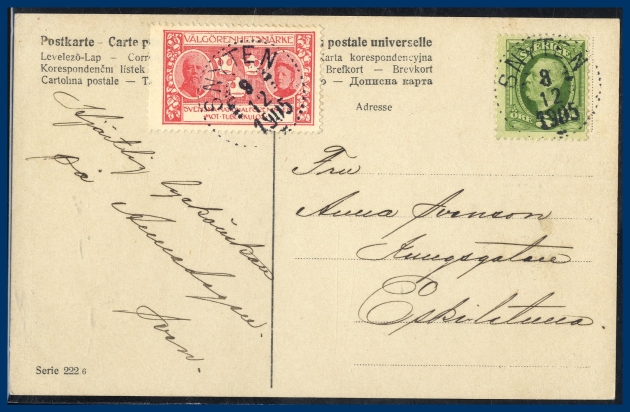 Postkarte - Carte po
s postale universelle
Levelező-Lap - Corr
Carta korespondencyjna
Korespondenční lístek
Brefkort - Brevkort
Cartolina postale - T
Дописна карта
VÄLGÖRENHETSMÄRKE
MOT-TUBERKULOS
SNITEN
8
12
1905
SVERIGE
ÖRE
8
12
1905
Adresse
Hjärtlig lyckönskan
på Annadagen.
Ivan.
Fru
Anna Svenson
Kungsgatan
Eskilstuna
Serie 222 6